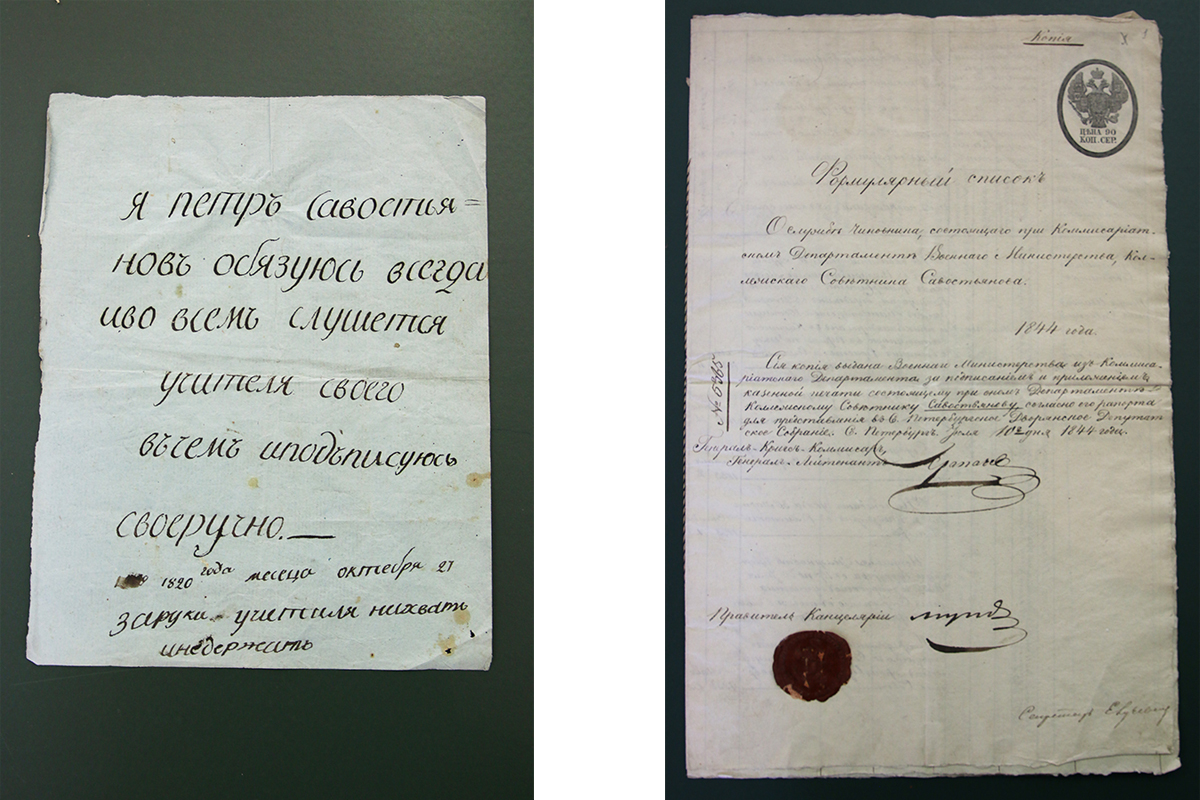 Я петръ Савостья=
новъ обязуюсь всегда
иво всемъ слушется
учителя своего
въчемъ иподъписуюсь
своеручно.—
1820 года месеца октебря 27
заруки учитиля нихвать
инедержать
Копія
ЦѢНА 90
КОП. СЕР.
Формулярный списокъ
О службѣ Чиновника, состоящаго при Коммисаріат-
скомъ Департаментѣ Военнаго Министерства, Кол-
лежскаго Совѣтника Савостьянова.
1844 года.
Сія копія выдана Военнаго Министерства изъ Коммиса-
ріатскаго Департамента за подписаніемъ и приложеніемъ
казенной печати состоящему при ономъ Департаментѣ
Коллежскому Совѣтнику Савостьянову, согласно его рапорта
для представленія въ С. Петербургское Дворянское Депутат-
ское Собраніе. С. Петербургъ Іюля 10го дня 1844 года.
Генералъ-Кригсъ-Коммисаръ,
Генералъ-Лейтенантъ
№ 6365
Правитель Канцеляріи
Секретарь